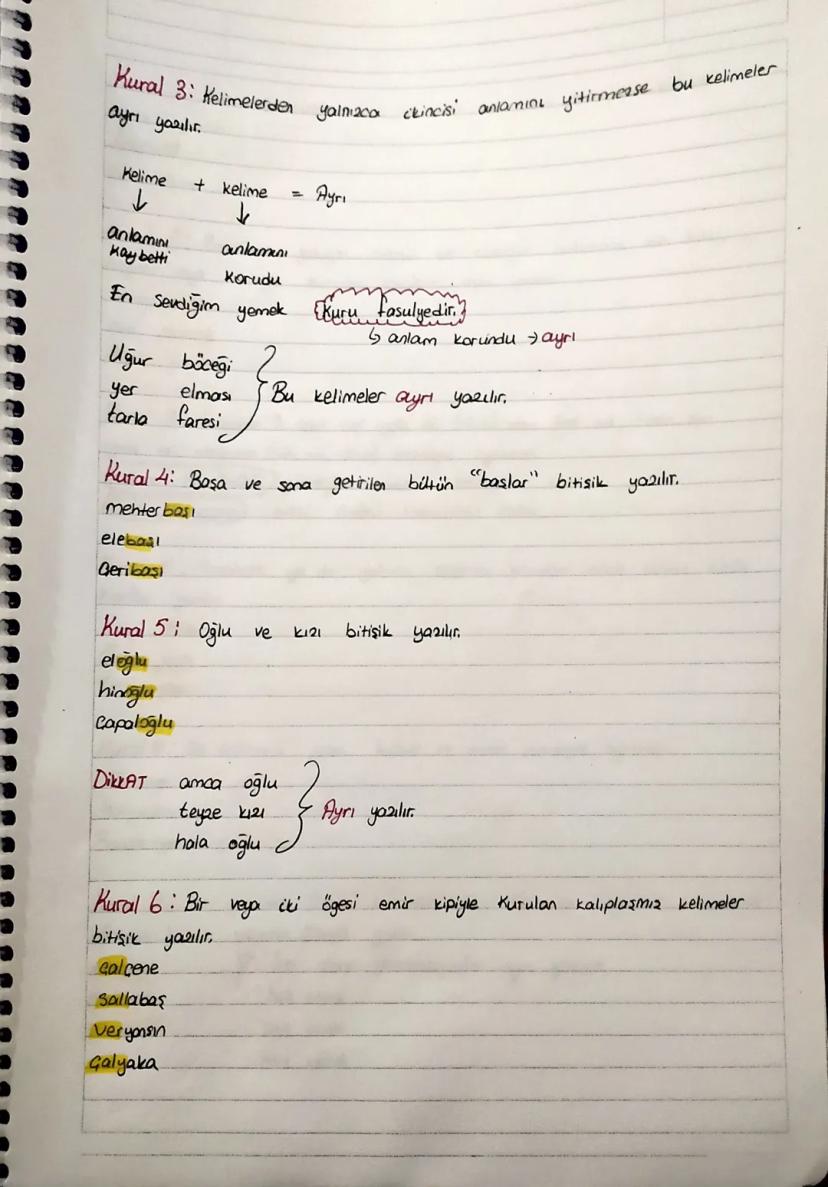 Kural 3: Kelimelerden yalnızca ikincisi anlamını yitirmezse bu kelimeler
ayrı yazılır.
Kelime + kelime = Ayrı
↓ ↓
anlamını anlamını
kaybetti korudu
En sevdiğim yemek kuru fasulyedir.
↳ anlam korundu → ayrı
Uğur böceği
yer elması Bu kelimeler ayrı yazılır.
tarla faresi
Kural 4: Başa ve sona getirilen bütün "başlar" bitişik yazılır.
mehterbaşı
elebaşı
çeribaşı
Kural 5: Oğlu ve kızı bitişik yazılır.
eloğlu
hinoğlu
Çapaloğlu
DİKKAT amca oğlu
teyze kızı Ayrı yazılır.
hala oğlu
Kural 6: Bir veya iki ögesi emir kipiyle kurulan kalıplaşmış kelimeler
bitişik yazılır.
çalçene
sallabaş
veryansın
Çalyaka